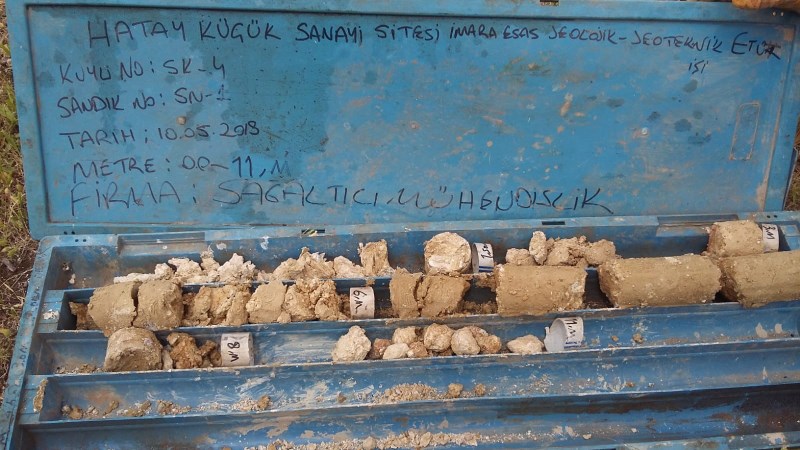 HATAY KÜÇÜK SANAYİ SİTESİ İMARA ESAS JEOLOJİK-JEOTEKNİK ETÜT
İŞİ
KUYU NO: SK-4
SANDIK NO: SN-1
TARİH: 10.05.2018
METRE: 0.0-11,M
FİRMA: SAGALTICI MÜHENDİSLİK